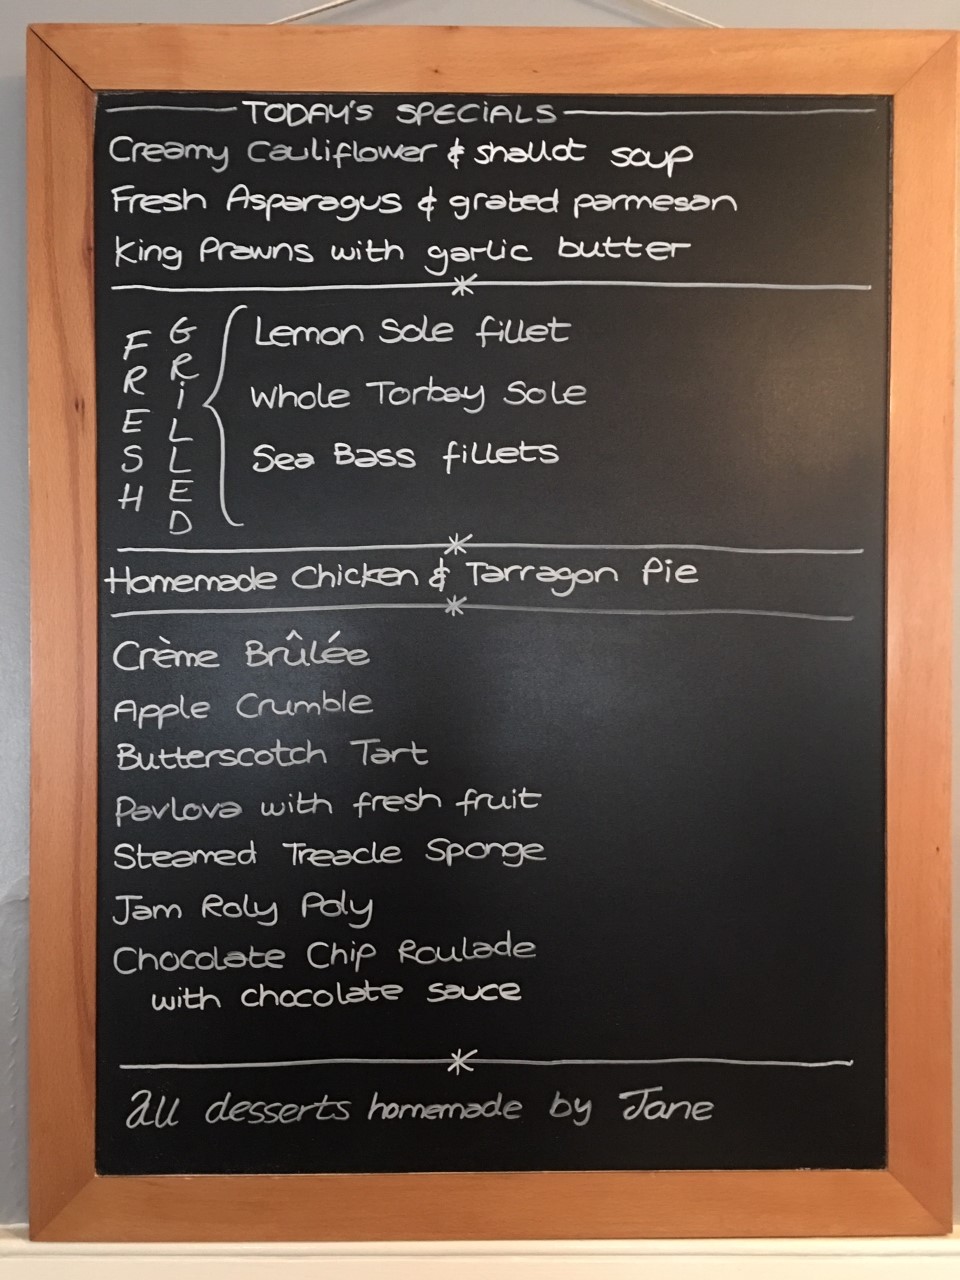 TODAY'S SPECiALS
Creamy Cauliflower & shallot soup
Fresh Asparagus & grated parmesan
King Prawns with garlic butter
FRESH
GRiLLED
Lemon Sole fillet
Whole Torbay Sole
Sea Bass fillets
Homemade Chicken & Tarragon Pie
Crème Brûlée
Apple Crumble
Butterscotch Tart
Pavlova with fresh fruit
Steamed Treacle Sponge
Jam Roly Poly
Chocolate Chip Roulade
with chocolate sauce
all desserts homemade by Jane